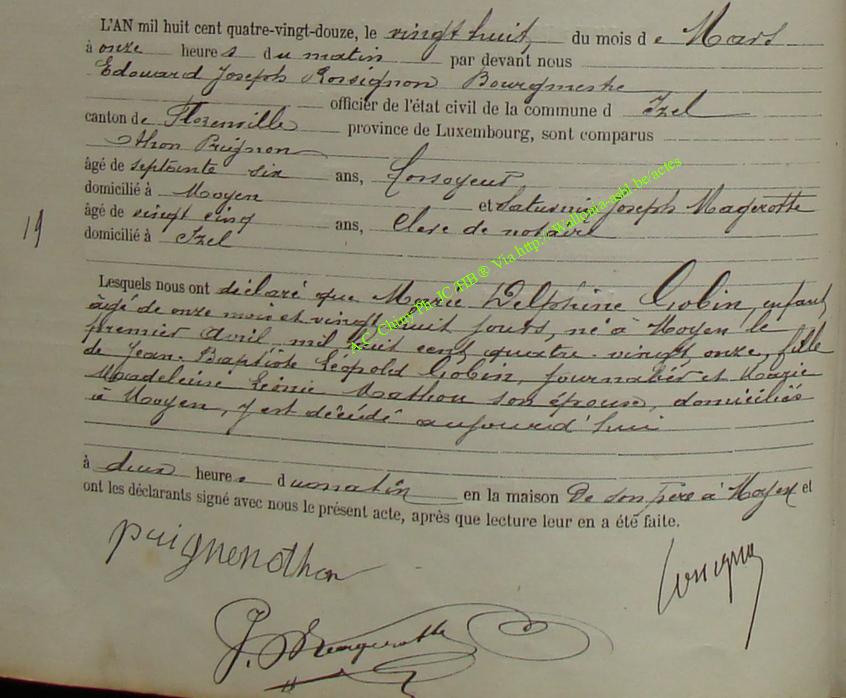 L'AN mil huit cent quatre-vingt-douze, le vingt huit, du mois d e Mars
à onze heure s du matin par devant nous
Edouard Joseph Rossignon Bourgmestre
officier de l'état civil de la commune d Izel
canton de Florenville province de Luxembourg, sont comparus
Othon Puignon
âgé de septante six ans,
domicilié à Moyen et Saturnin Joseph Magerotte
âgé de vingt cinq ans, Clerc de notaire
domicilié à Izel
19
Lesquels nous ont déclaré que Marie Delphine Gobin, enfant,
âgé de onze mois et vingt huit jours, né à Moyen le
premier Avril mil huit cent quatre-vingt onze, fille
de Jean-Baptiste Léopold Gobin, journalier et Marie
Madeleine Léonie Mathou son épouse, domiciliés
à Moyen, y est décédé aujourd'hui
à deux heure s du matin en la maison De son père à Moyen et
ont les déclarants signé avec nous le présent acte, après que lecture leur en a été faite.
puignonothon
Rossignon
J. Magerotte
A.C. Chiny Ph JC HB ® Via http://Wallonia-asbl.be/actes